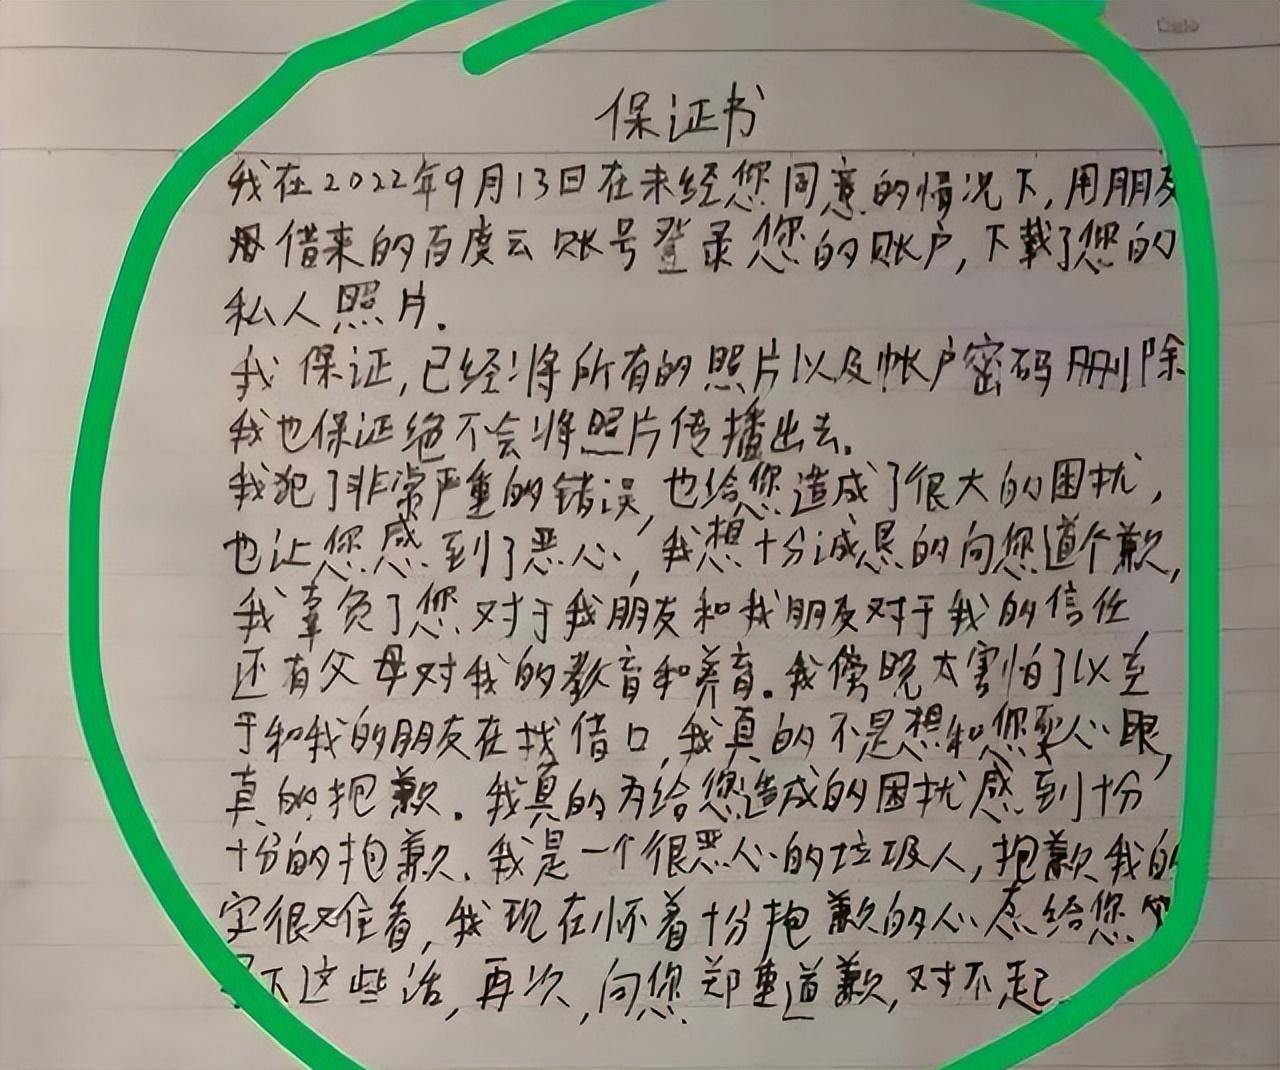 Date
保证书
我在2022年9月13日在未经您同意的情况下,用朋友
借来的百度云账号登录您的账户,下载了您的
私人照片.
我保证,已经将所有的照片以及帐户密码删除
我也保证绝不会将照片传播出去.
我犯了非常严重的错误,也给您造成了很大的困扰,
也让您感到了恶心,我想十分诚恳的向您道个歉,
我辜负了您对于我朋友和我朋友对于我的信任
还有父母对我的教育和养育.我傍晚太害怕了以至
于和我的朋友在找借口,我真的不是想和您耍心眼,
真的抱歉.我真的为给您造成的困扰感到十分
十分的抱歉.我是一个很恶心的垃圾人,抱歉我的
字很难看,我现在怀着十分抱歉的心态给您
下这些话,再次,向您郑重道歉,对不起.